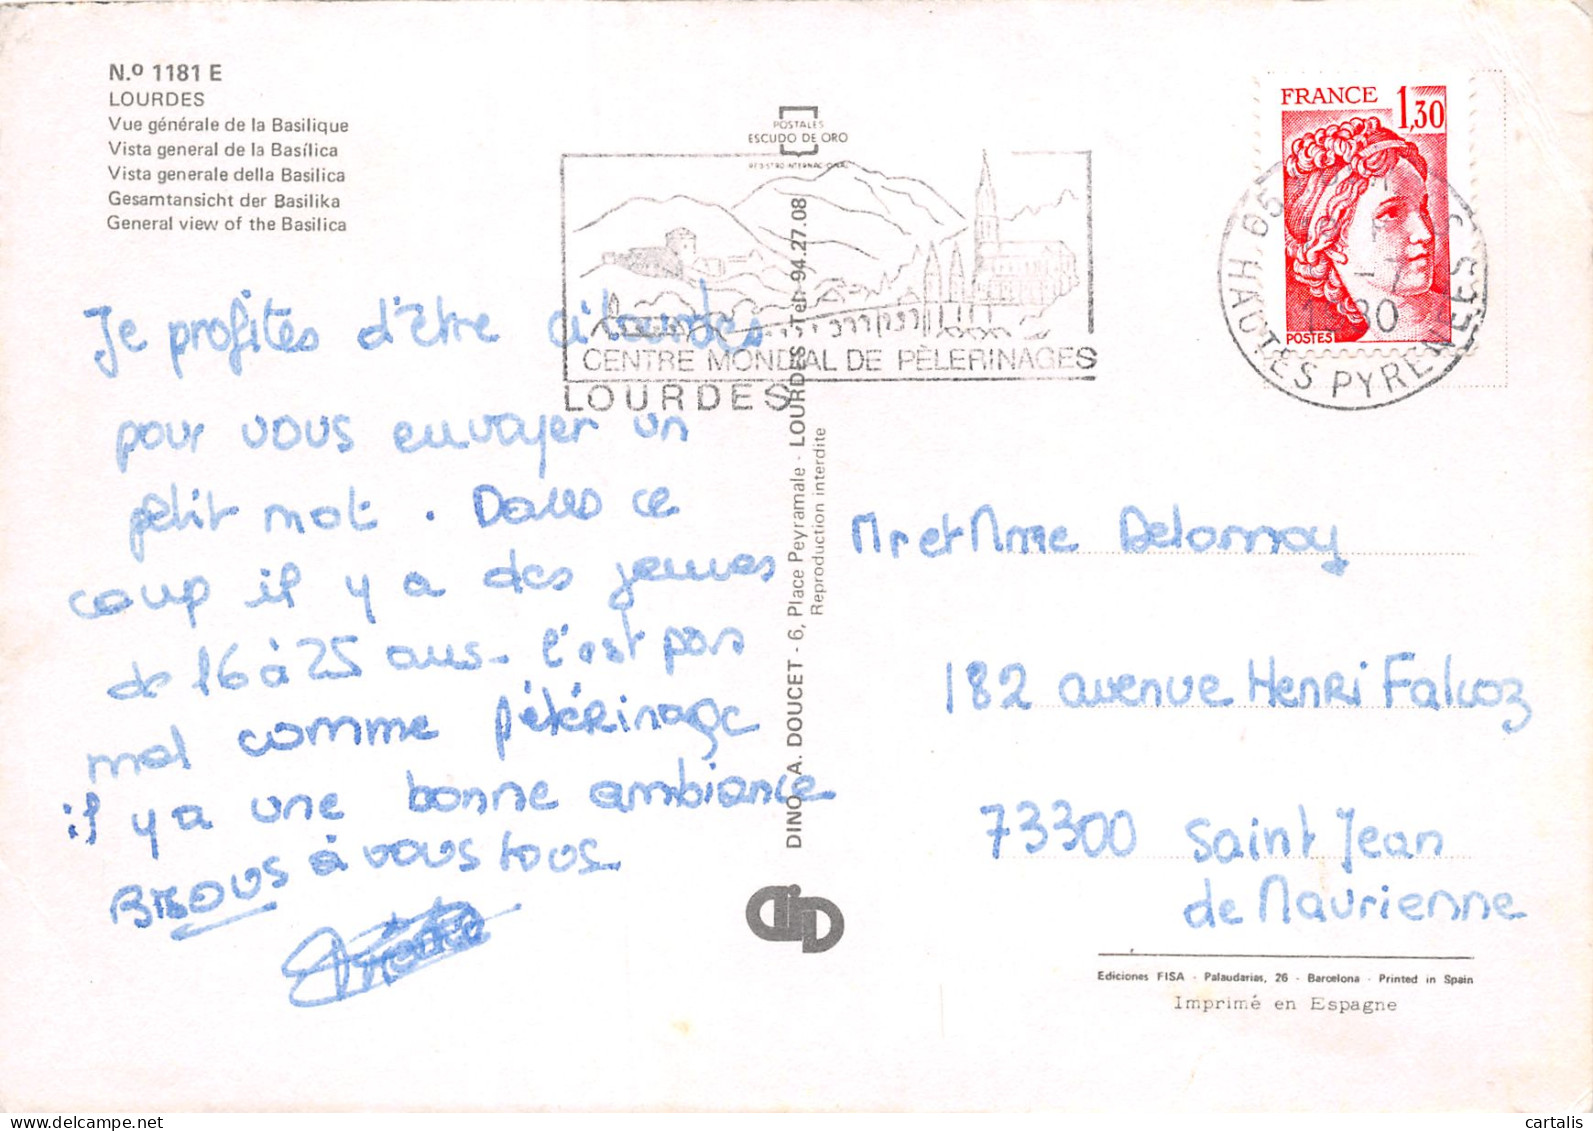 N.º 1181 E
LOURDES
Vue générale de la Basilique
Vista general de la Basílica
Vista generale della Basilica
Gesamtansicht der Basilika
General view of the Basilica
POSTALES
ESCUDO DE ORO
REGISTRO INTERNACIONAL
CENTRE MONDIAL DE PÈLERINAGES
LOURDES
FRANCE 1,30
POSTES
65
HAUTES PYRENEES
Je profites d'être à lourdes
pour vous envoyer un
petit mot. Dans ce
coup il y a des jeunes
de 16 à 25 ans. c'est pas
mal comme pélérinage
il y a une bonne ambiance
Bisous à vous tous
DINO. A. DOUCET - 6, Place Peyramale - LOURDES - Tel: 94.27.08
Reproduction interdite
Mr et Mme Delannay
182 avenue Henri Falcoz
73300 Saint Jean
de Maurienne
Ediciones FISA - Palaudarias, 26 - Barcelona - Printed in Spain
Imprimé en Espagne
cartalis
delcampe.net